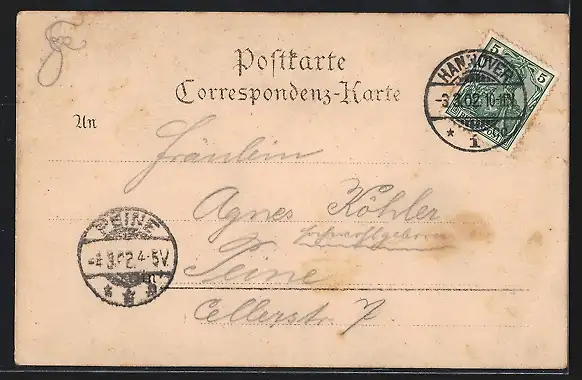 Postkarte
Correspondenz-Karte
5 5
HANNOVER
-3.3.02.10-11N.
* 1
An
Fräulein
Agnes Köhler
Hochwohlgeboren
PEINE
-4.3.02.4-5V
* * *
in
Peine
Cellerstr. 7